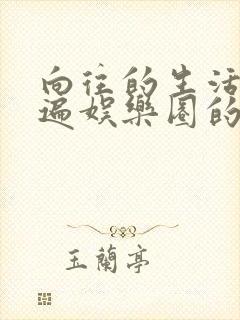 向往的生活
遍娱樂圈的
玉蘭亭